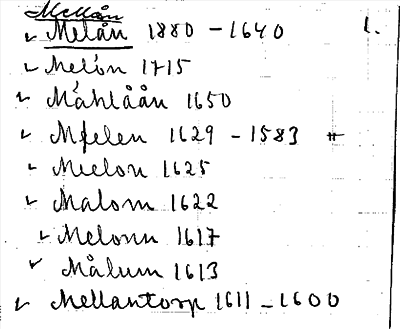 Mellån
✓ Melån 1880 – 1640 1.
✓ Melón 1715
✓ Måhlåån 1650
✓ Mfelen 1629 – 1583 #
✓ Mielon 1625
✓ Malom 1622
✓ Melonn 1617
✓ Målum 1613
✓ Mellantorp 1611 – 1600